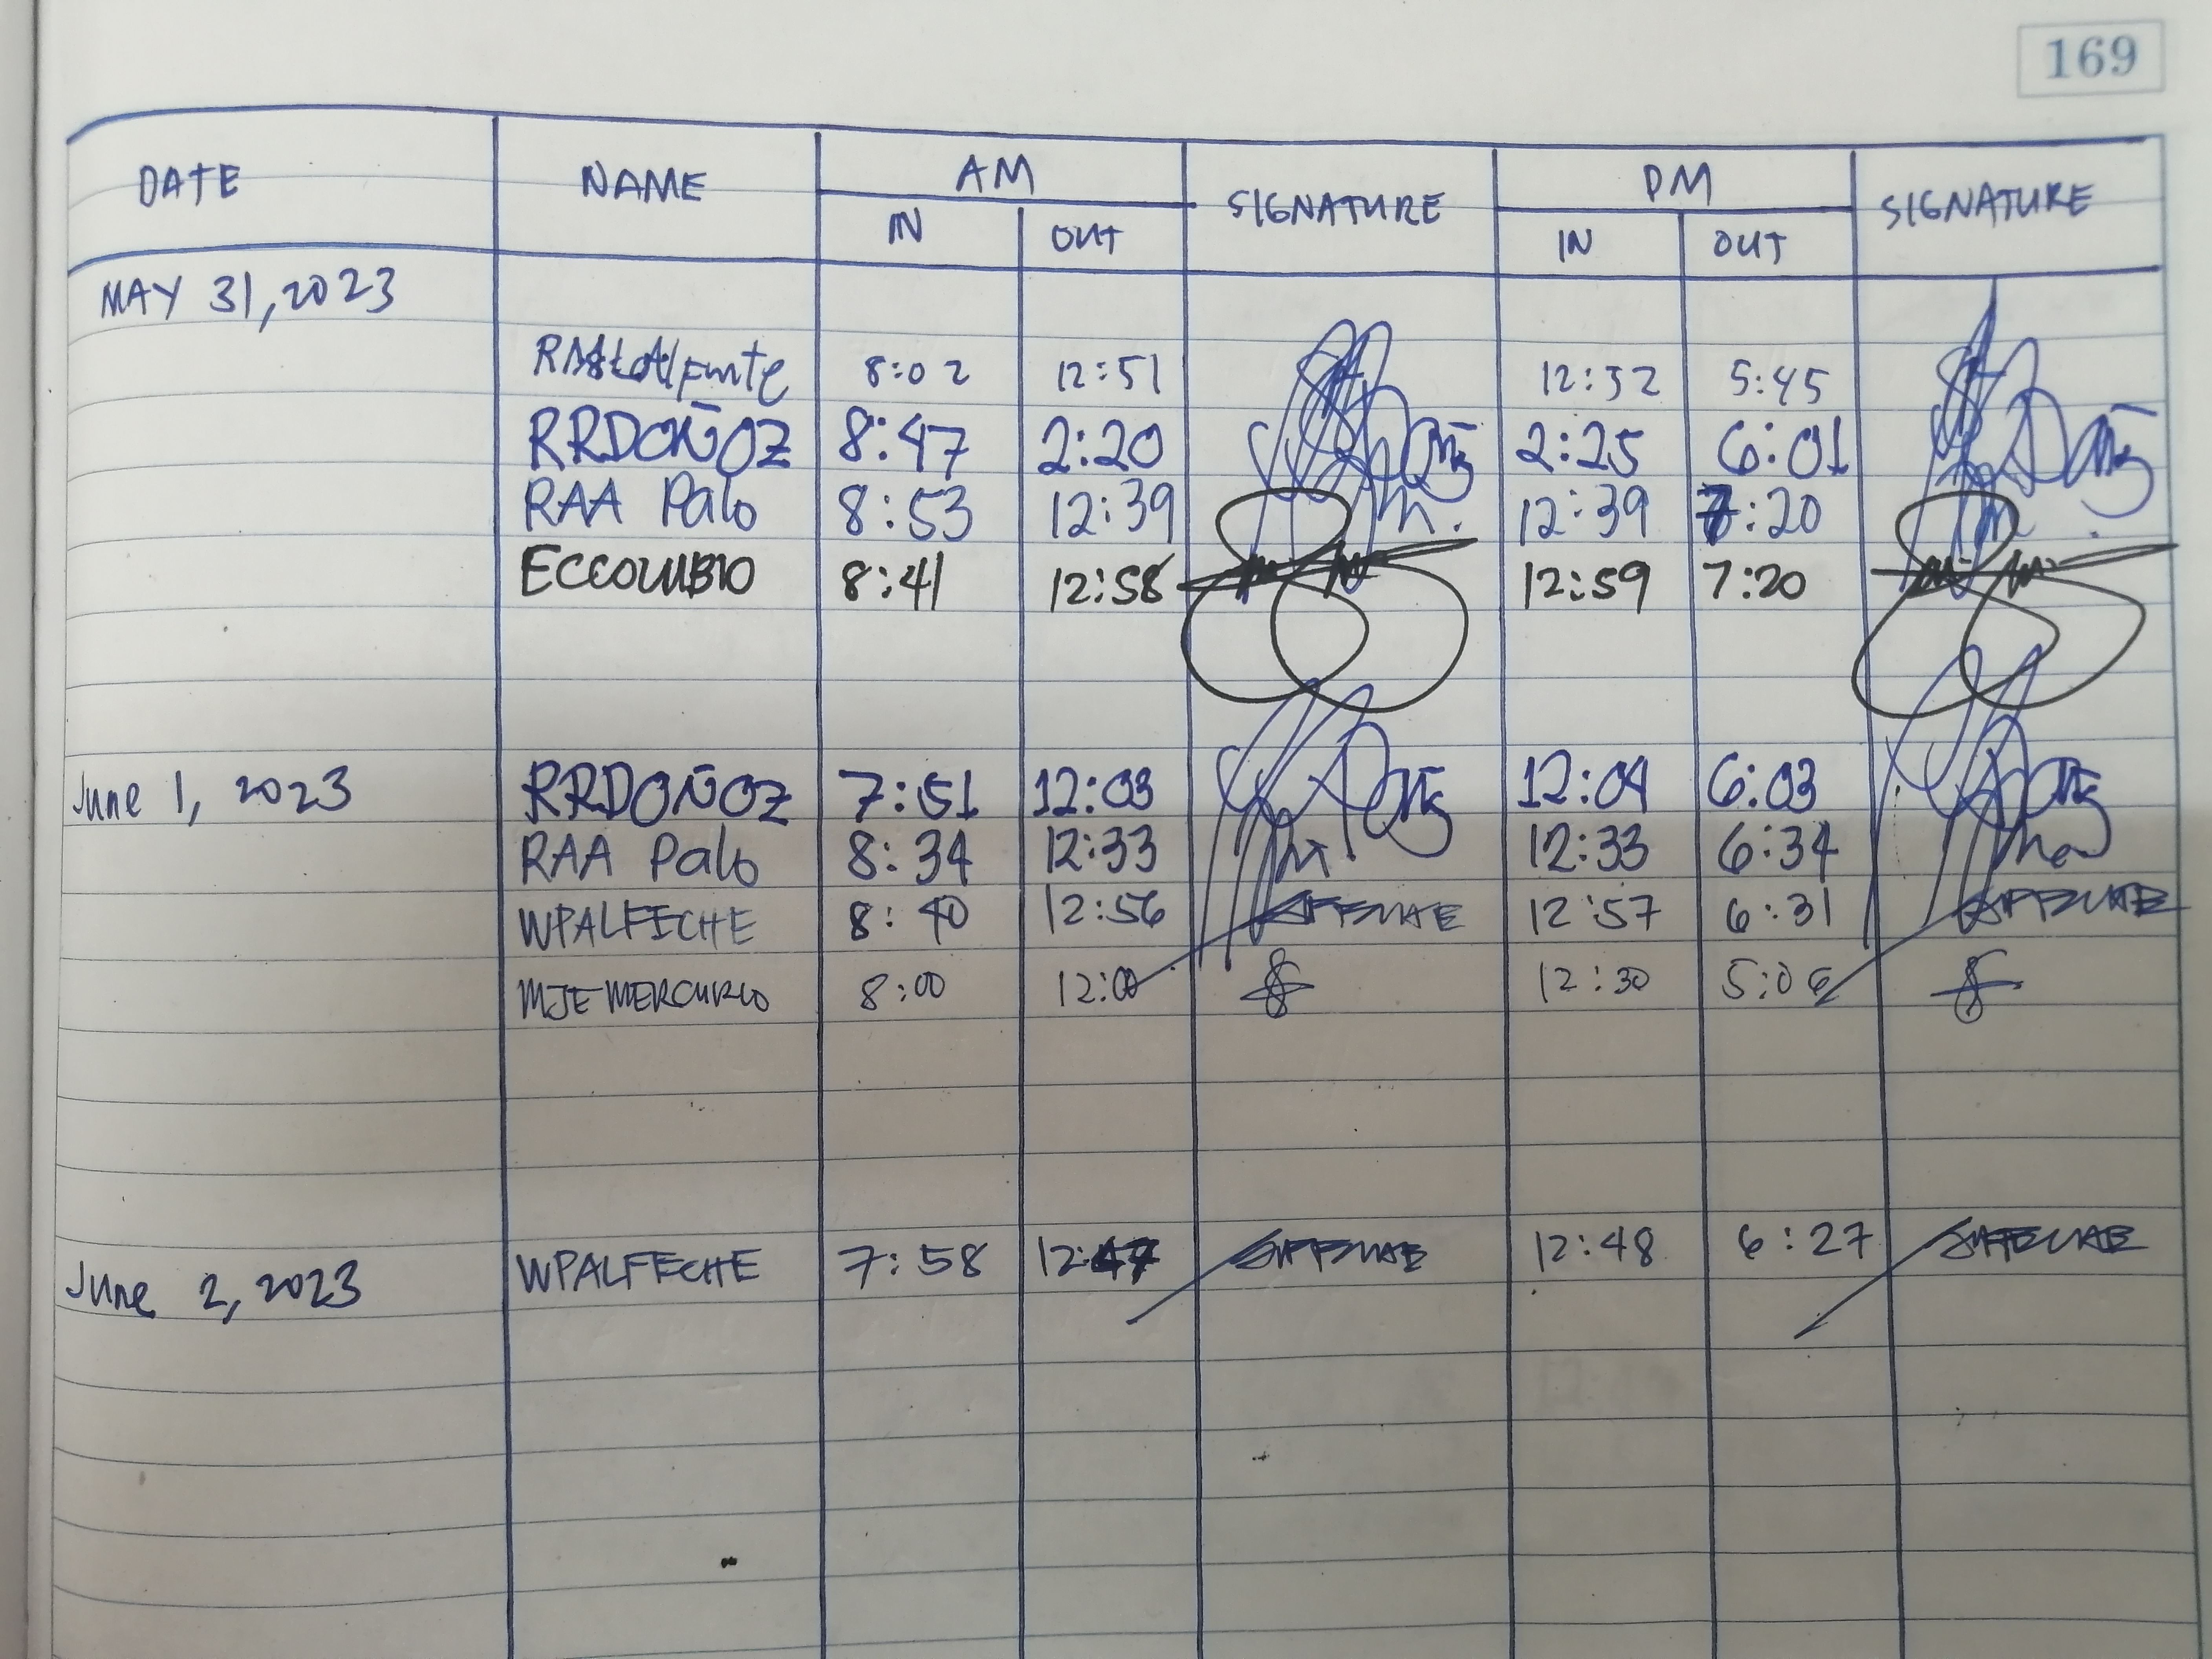 169
DATE NAME AM SIGNATURE PM SIGNATURE
IN OUT IN OUT
MAY 31, 2023
8:02 12:51 12:52 5:45
RRDOÑOZ 8:47 2:20 2:25 6:01
RAA Palo 8:53 12:39 12:39 7:20
ECCOLUBIO 8:41 12:58 12:59 7:20
June 1, 2023 RRDOÑOZ 7:51 12:03 12:04 6:03
RAA Palo 8:34 12:33 12:33 6:34
WPALFECHE 8:40 12:56 12:57 6:31
MJEMERCURIO 8:00 12:00 12:30 5:06
June 2, 2023 WPALFECHE 7:58 12:47 12:48 6:27